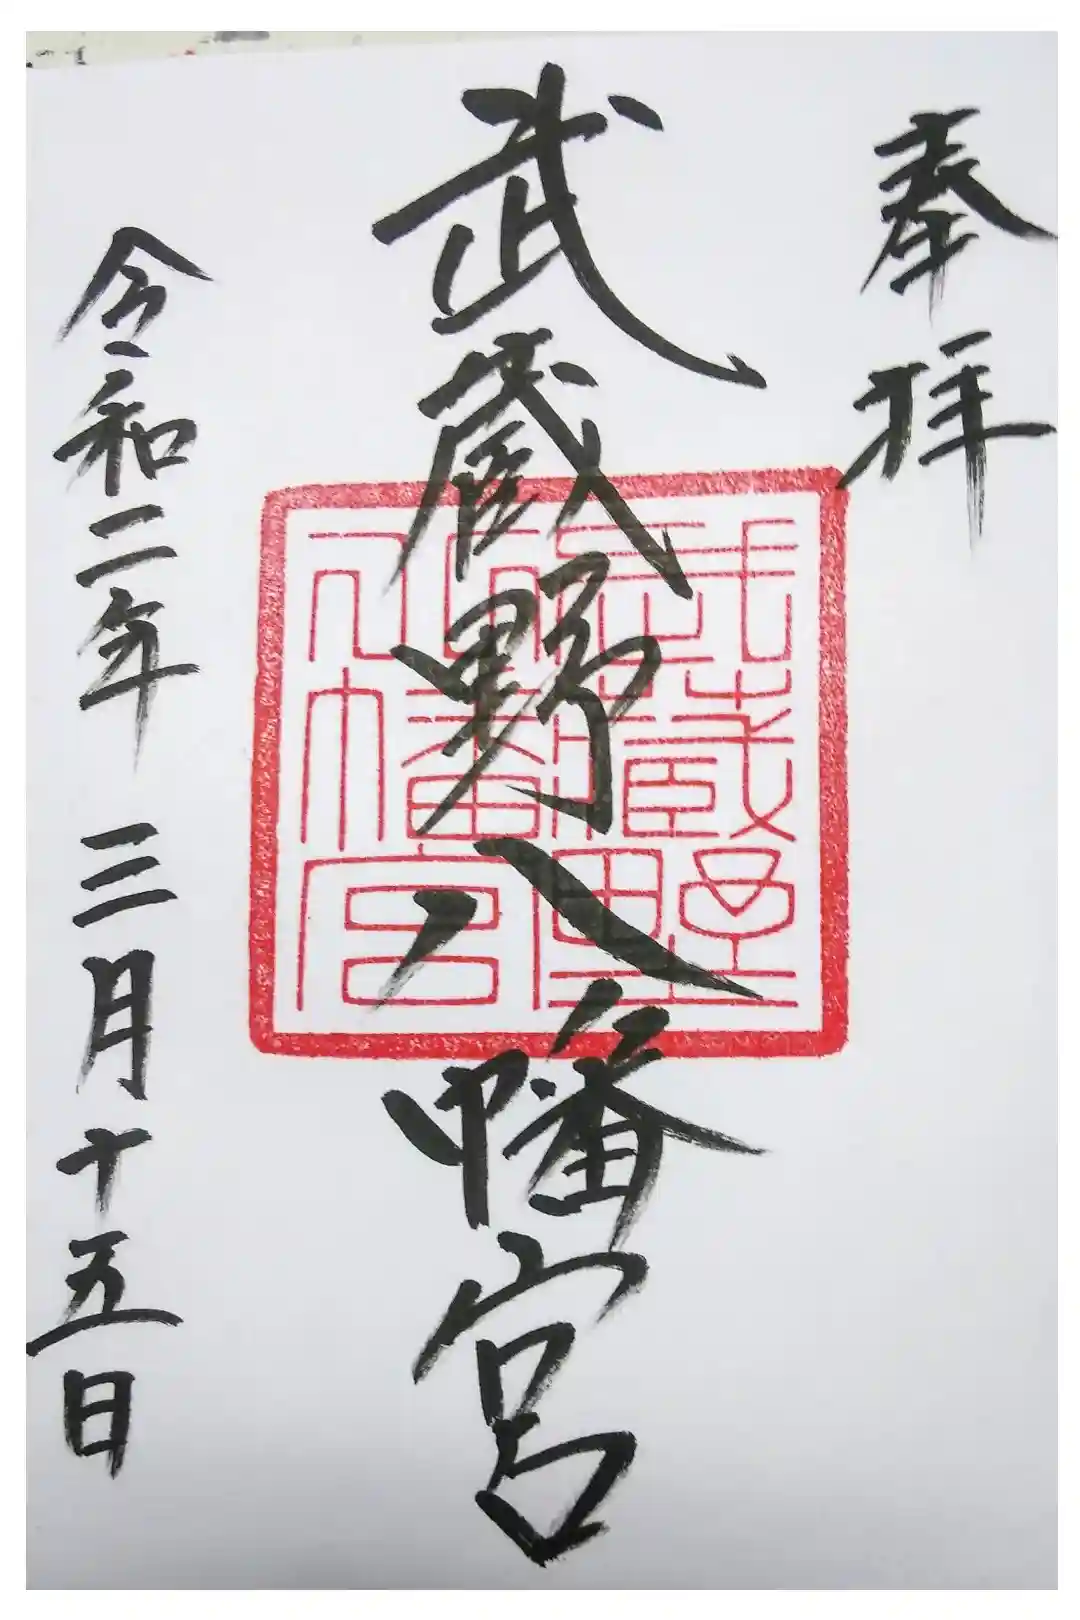 奉拝
武蔵野八幡宮
武蔵野八幡宮
令和二年 三月十五日